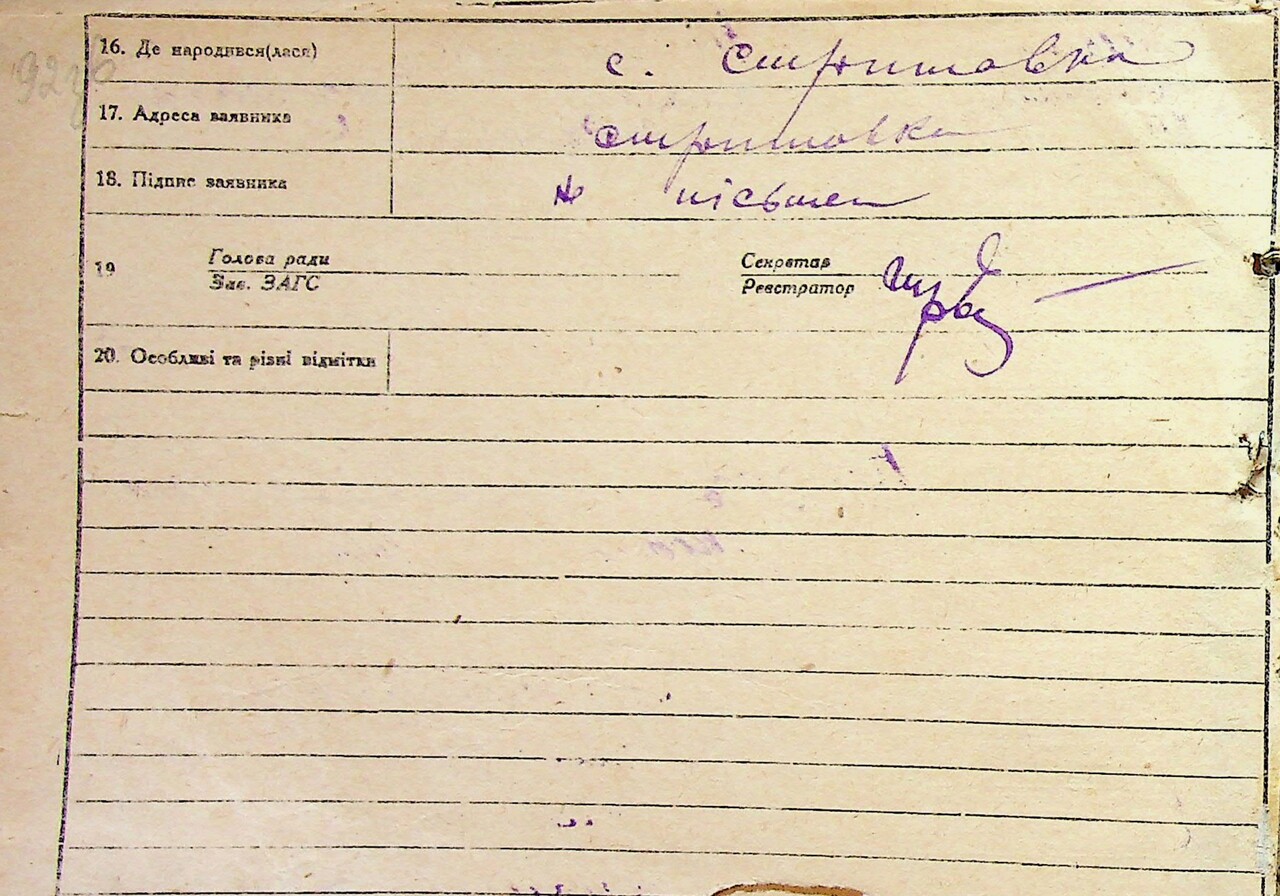 16. Де народився(лася) с. Стритовка
17. Адреса заявника Стритовка
18. Підпис заявника не пісьмен
19 Голова ради Секретар
Зав. ЗАГС Реєстратор
20. Особливі та різні відмітки